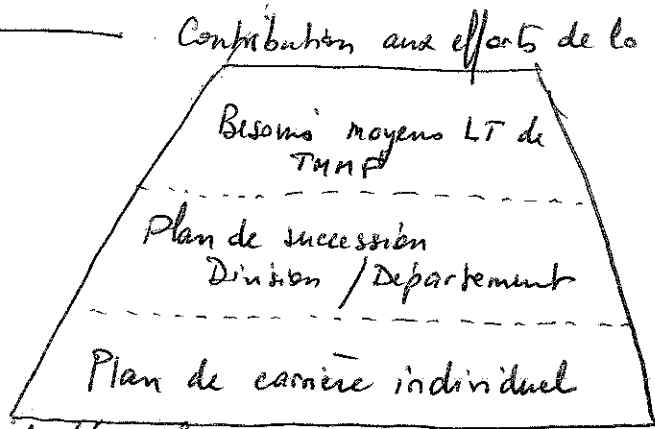 Contribution aux efforts de la
Besoins moyens LT de
TMMF
Plan de succession
Division / Département
Plan de carrière individuel